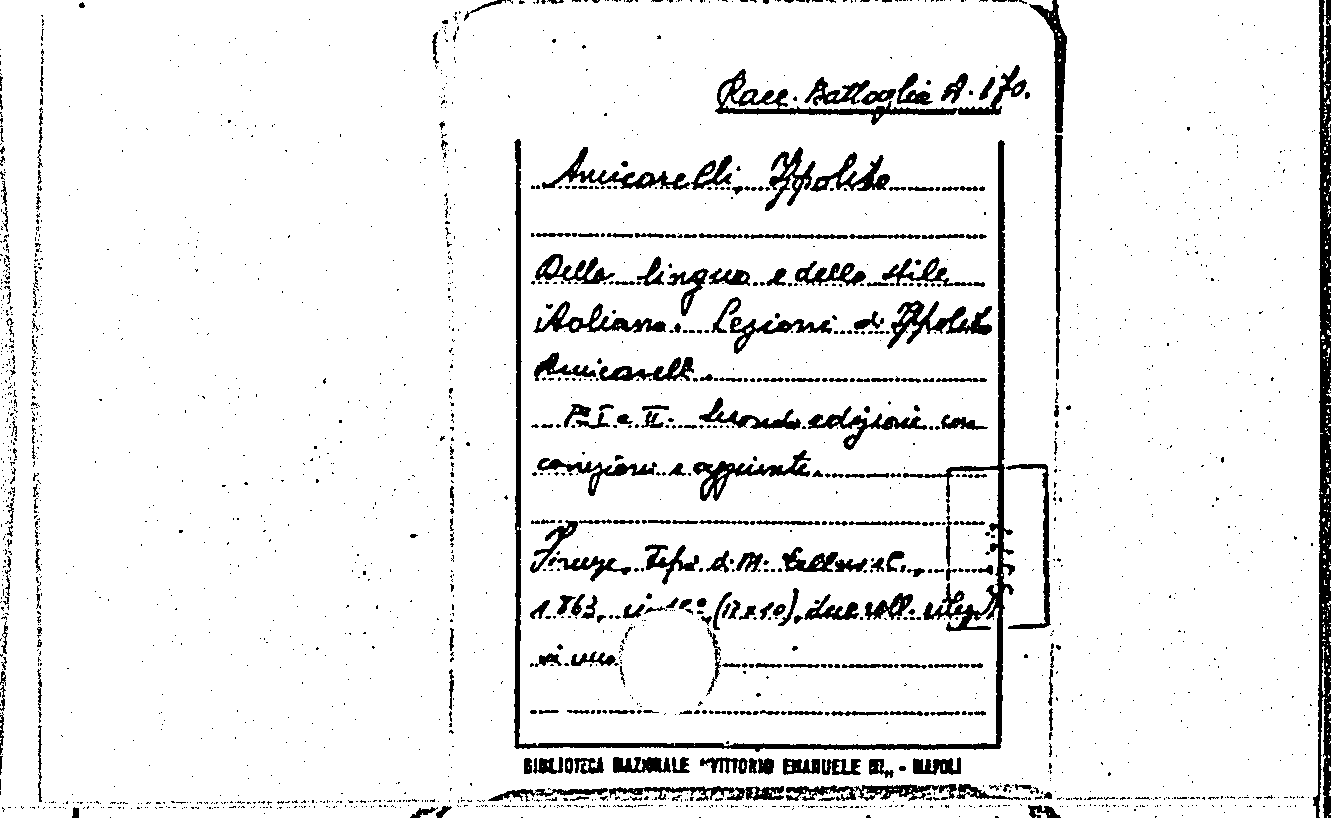 Racc. Battaglia A. 170.
Amicarelli, Ippolito
Della lingua e dello stile
italiano. Lezioni di Ippolito
Amicarelli.
Pte I e II. Seconda edizione con
correzioni e aggiunte.
Firenze, Tipi di M. Cellini e C.,
1863, in (17x10), due voll. rilegati
in uno
BIBLIOTECA NAZIONALE "VITTORIO EMANUELE III„ - NAPOLI